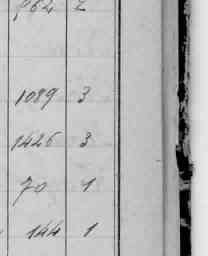 962 2
1089 3
1426 3
70 1
144 1